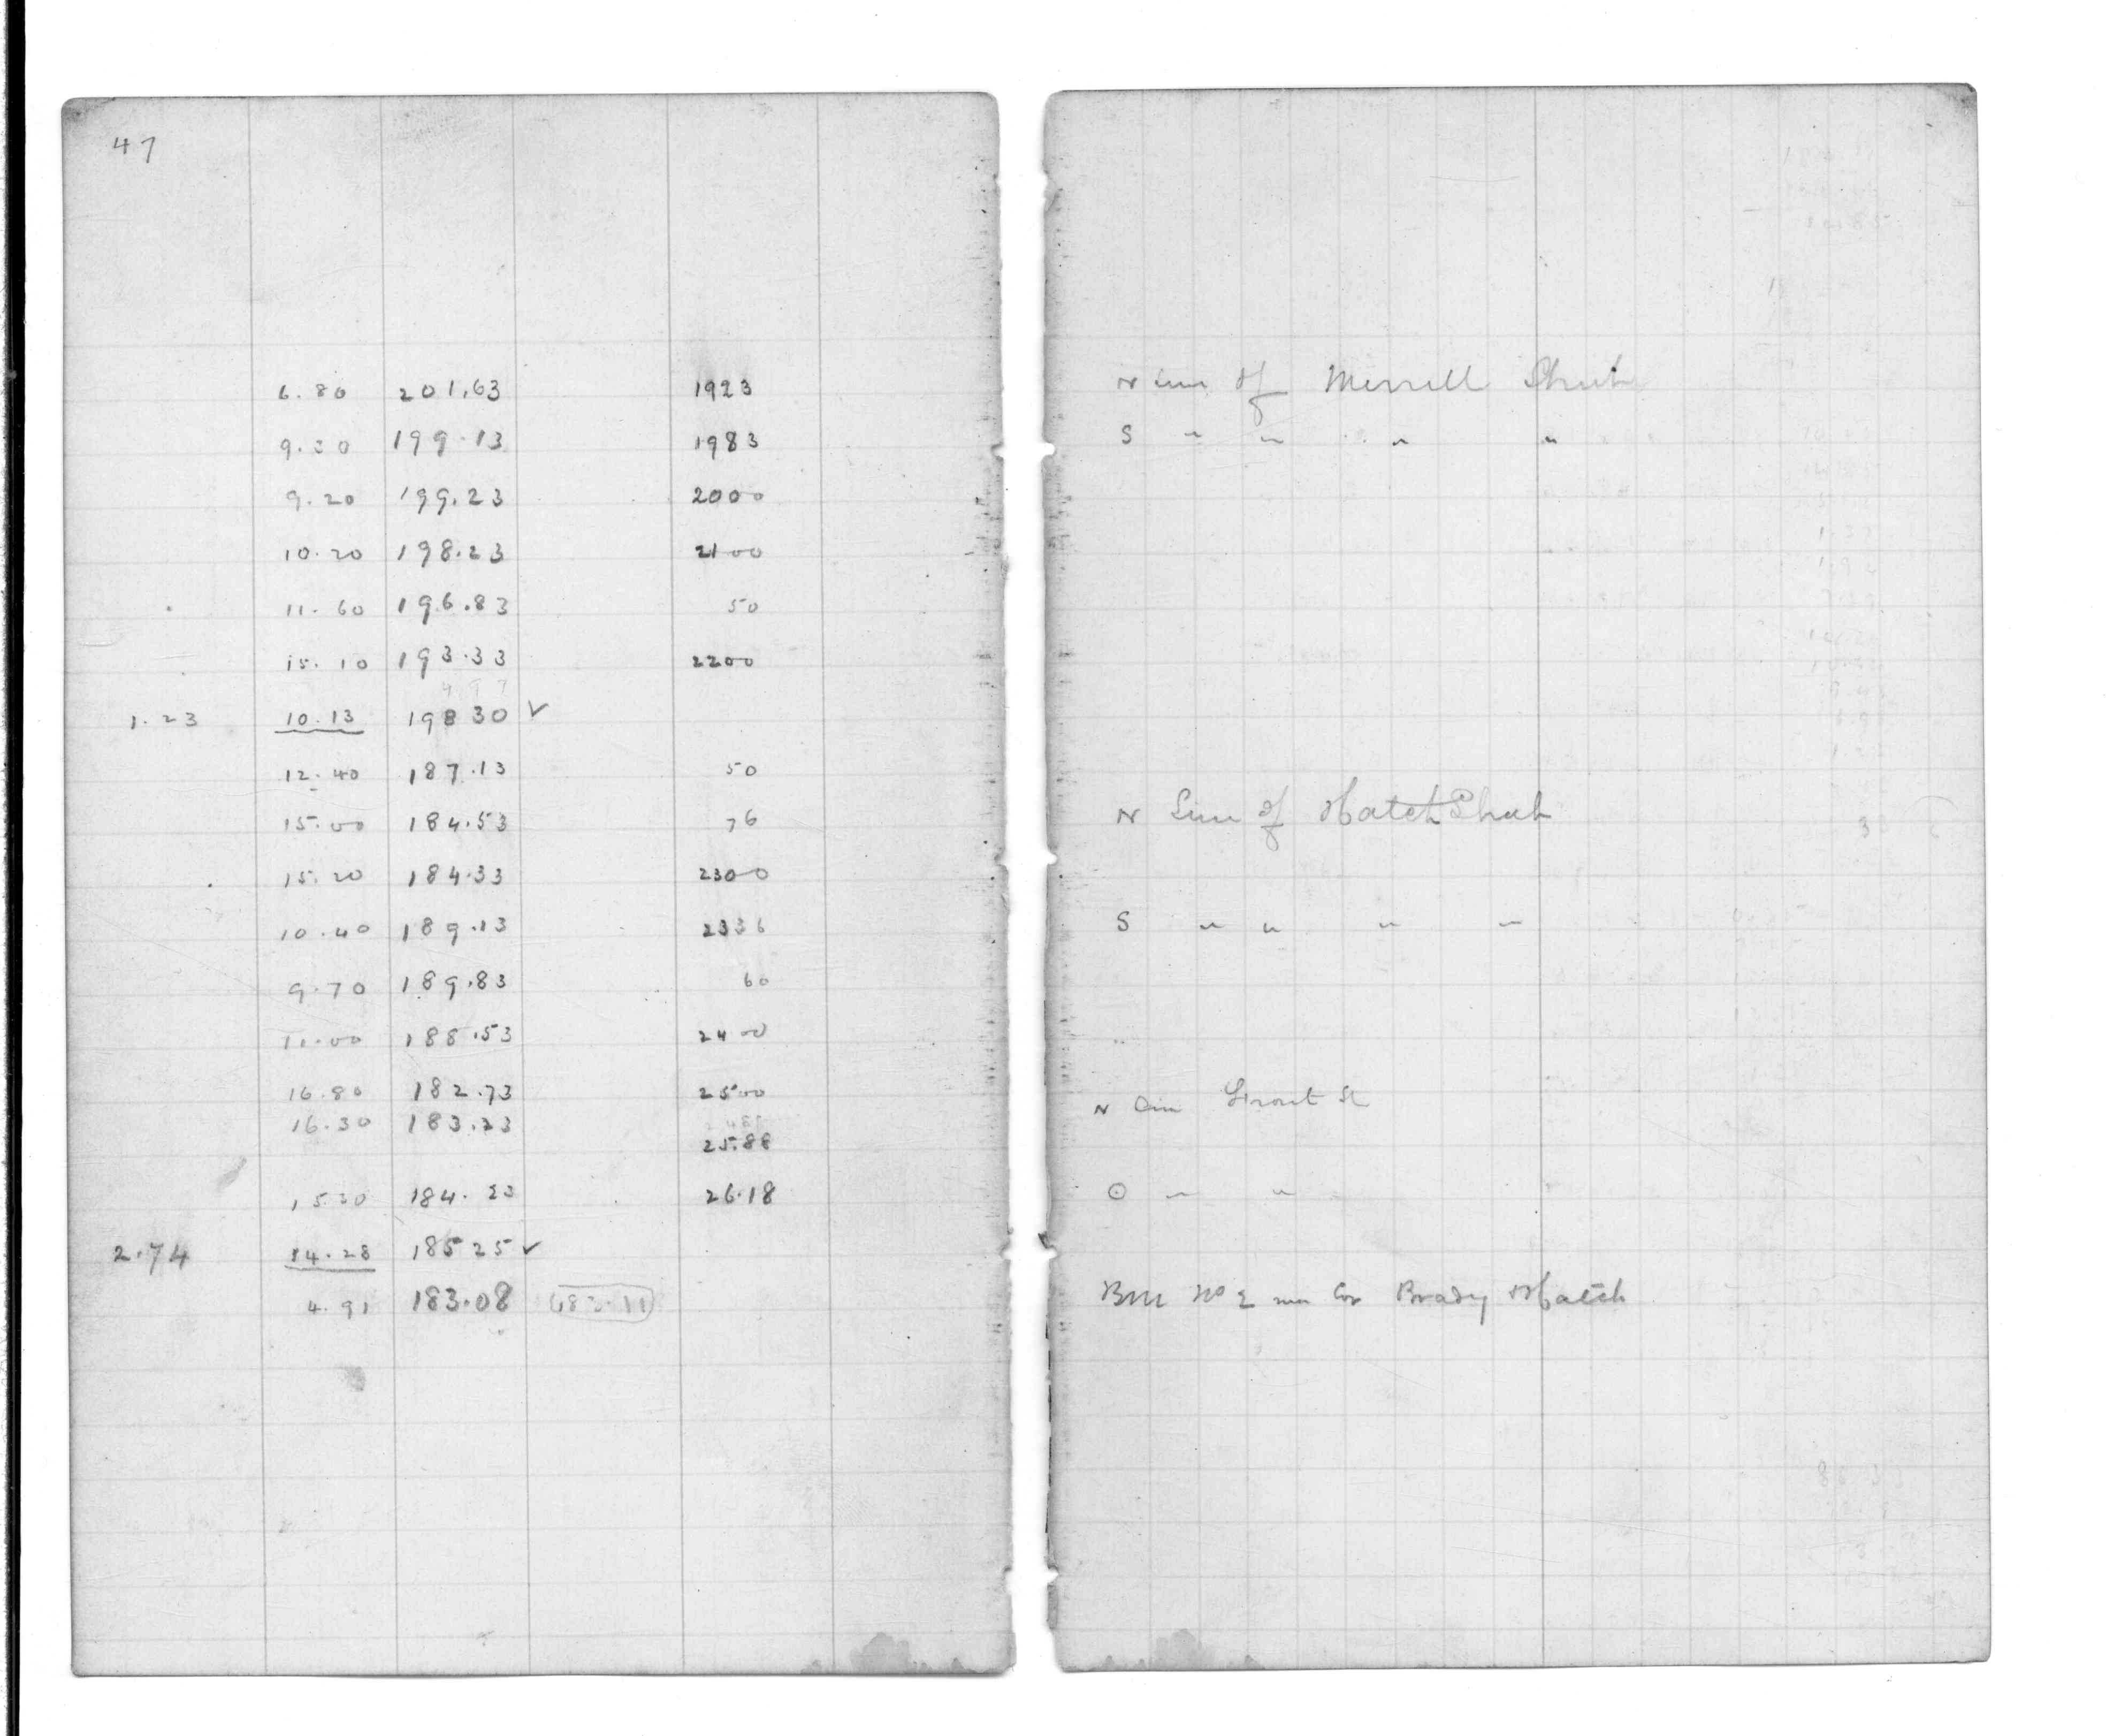 47
6.80 201.63 1923 N Line of Merrell Street
9.30 199.13 1983 S " " " "
9.20 199.23 2000
10.20 198.23 2100
11.60 196.83 50
15.10 193.33 2200
1.23 10.13 198 30 ✓
12.40 187.13 50
15.00 184.53 76 N Line of Hatch Street
15.20 184.33 2300
10.40 189.13 2336 S " " " "
9.70 189.83 60
11.00 188.53 2400
16.80 182.73 2500 N Line Grout St
16.30 183.23
25.88
15.30 184.23 26.18 ⊙ " "
2.74 14.28 185 25 ✓
4.91 183.08 183.11 BM No 2 Cor Brady Hatch